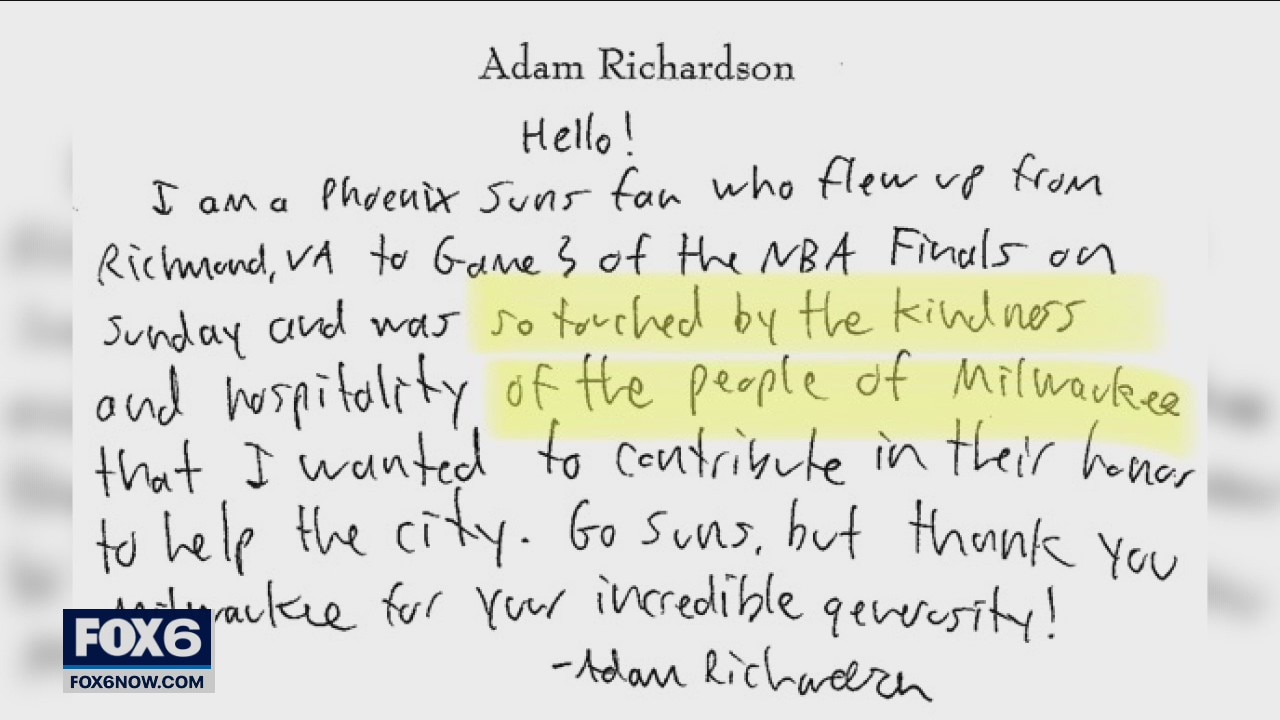 Adam Richardson
Hello!
I am a Phoenix Suns fan who flew up from
Richmond, VA to Game 3 of the NBA Finals on
Sunday and was so touched by the kindness
and hospitality of the people of Milwaukee
that I wanted to contribute in their honor
to help the city. Go Suns, but thank you
Milwaukee for your incredible generosity!
-Adam Richardson
FOX6
FOX6NOW.COM